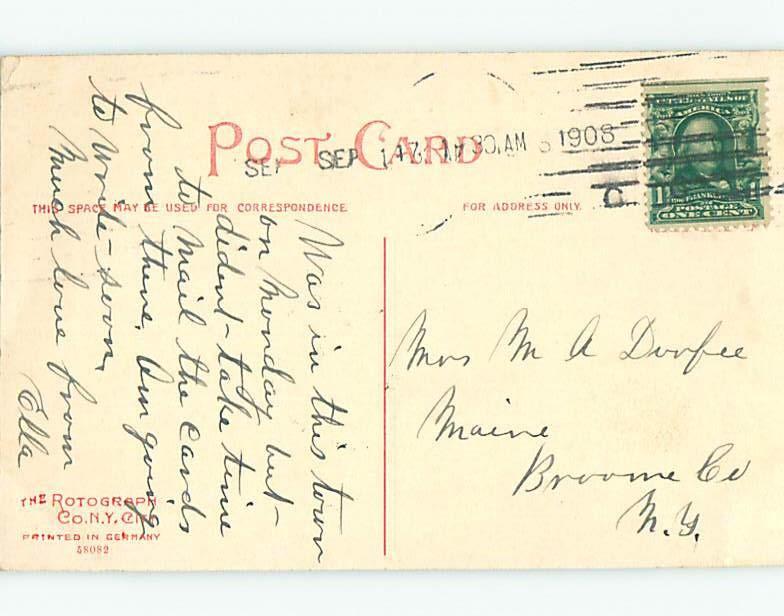 POST CARD
SEP
SEP 1 30 AM 1908
THIS SPACE MAY BE USED FOR CORRESPONDENCE
FOR ADDRESS ONLY.
AMERICA
POSTAGE
ONE CENT
Was in this town
on Monday but
dident take time
to mail the cards
from there. Am going
to write soon,
Much love from
Ella
Mrs M A Durfee
Maine
Broome Co
N.Y.
THE ROTOGRAPH
CO. N.Y. City
PRINTED IN GERMANY
58082